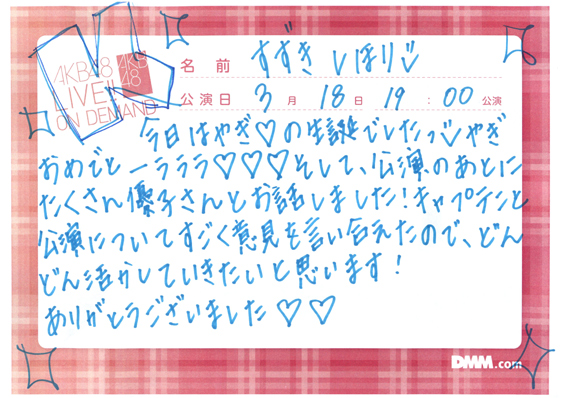 AKB48
LIVE!!
ON DEMAND
AKB
48
名 前 すずき しほり
公演日 3 月 18 日 19 : 00 公演
今日はやぎ♡の生誕でしたっ やぎ
おめでとーラララ♡♡♡そして、公演のあとに
たくさん優子さんとお話しました!キャプテンと
公演についてすごく意見を言い合えたので、どん
どん活かしていきたいと思います!
ありがとうございました♡♡
DMM.com